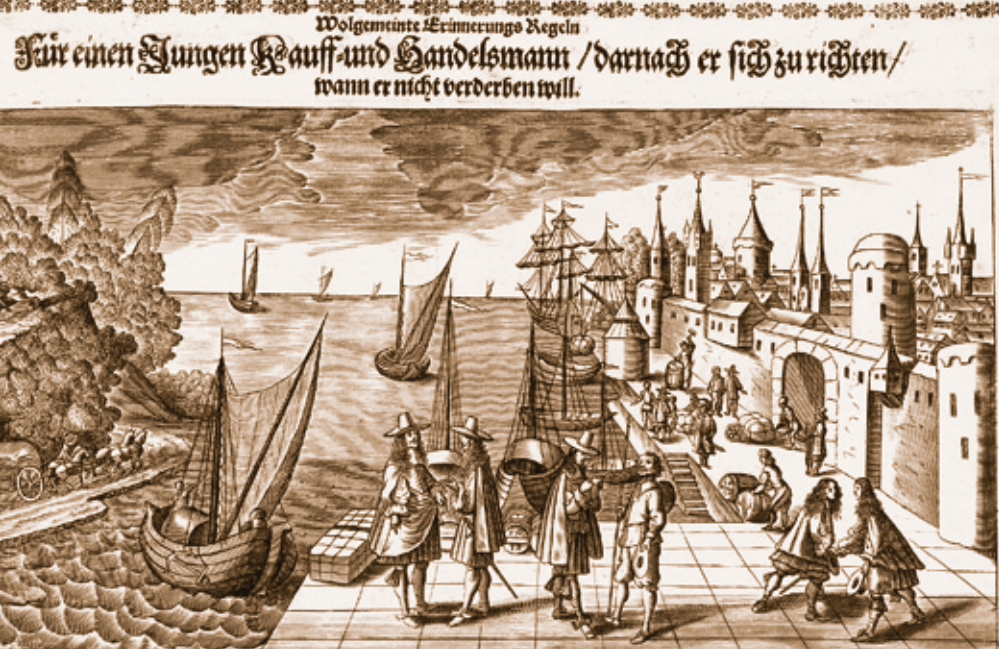 Wolgemeinte Erinnerungs Regeln
Für einen Jungen Kauff-und Handelsmann / darnach er sich zu richten /
wann er nicht verderben will.